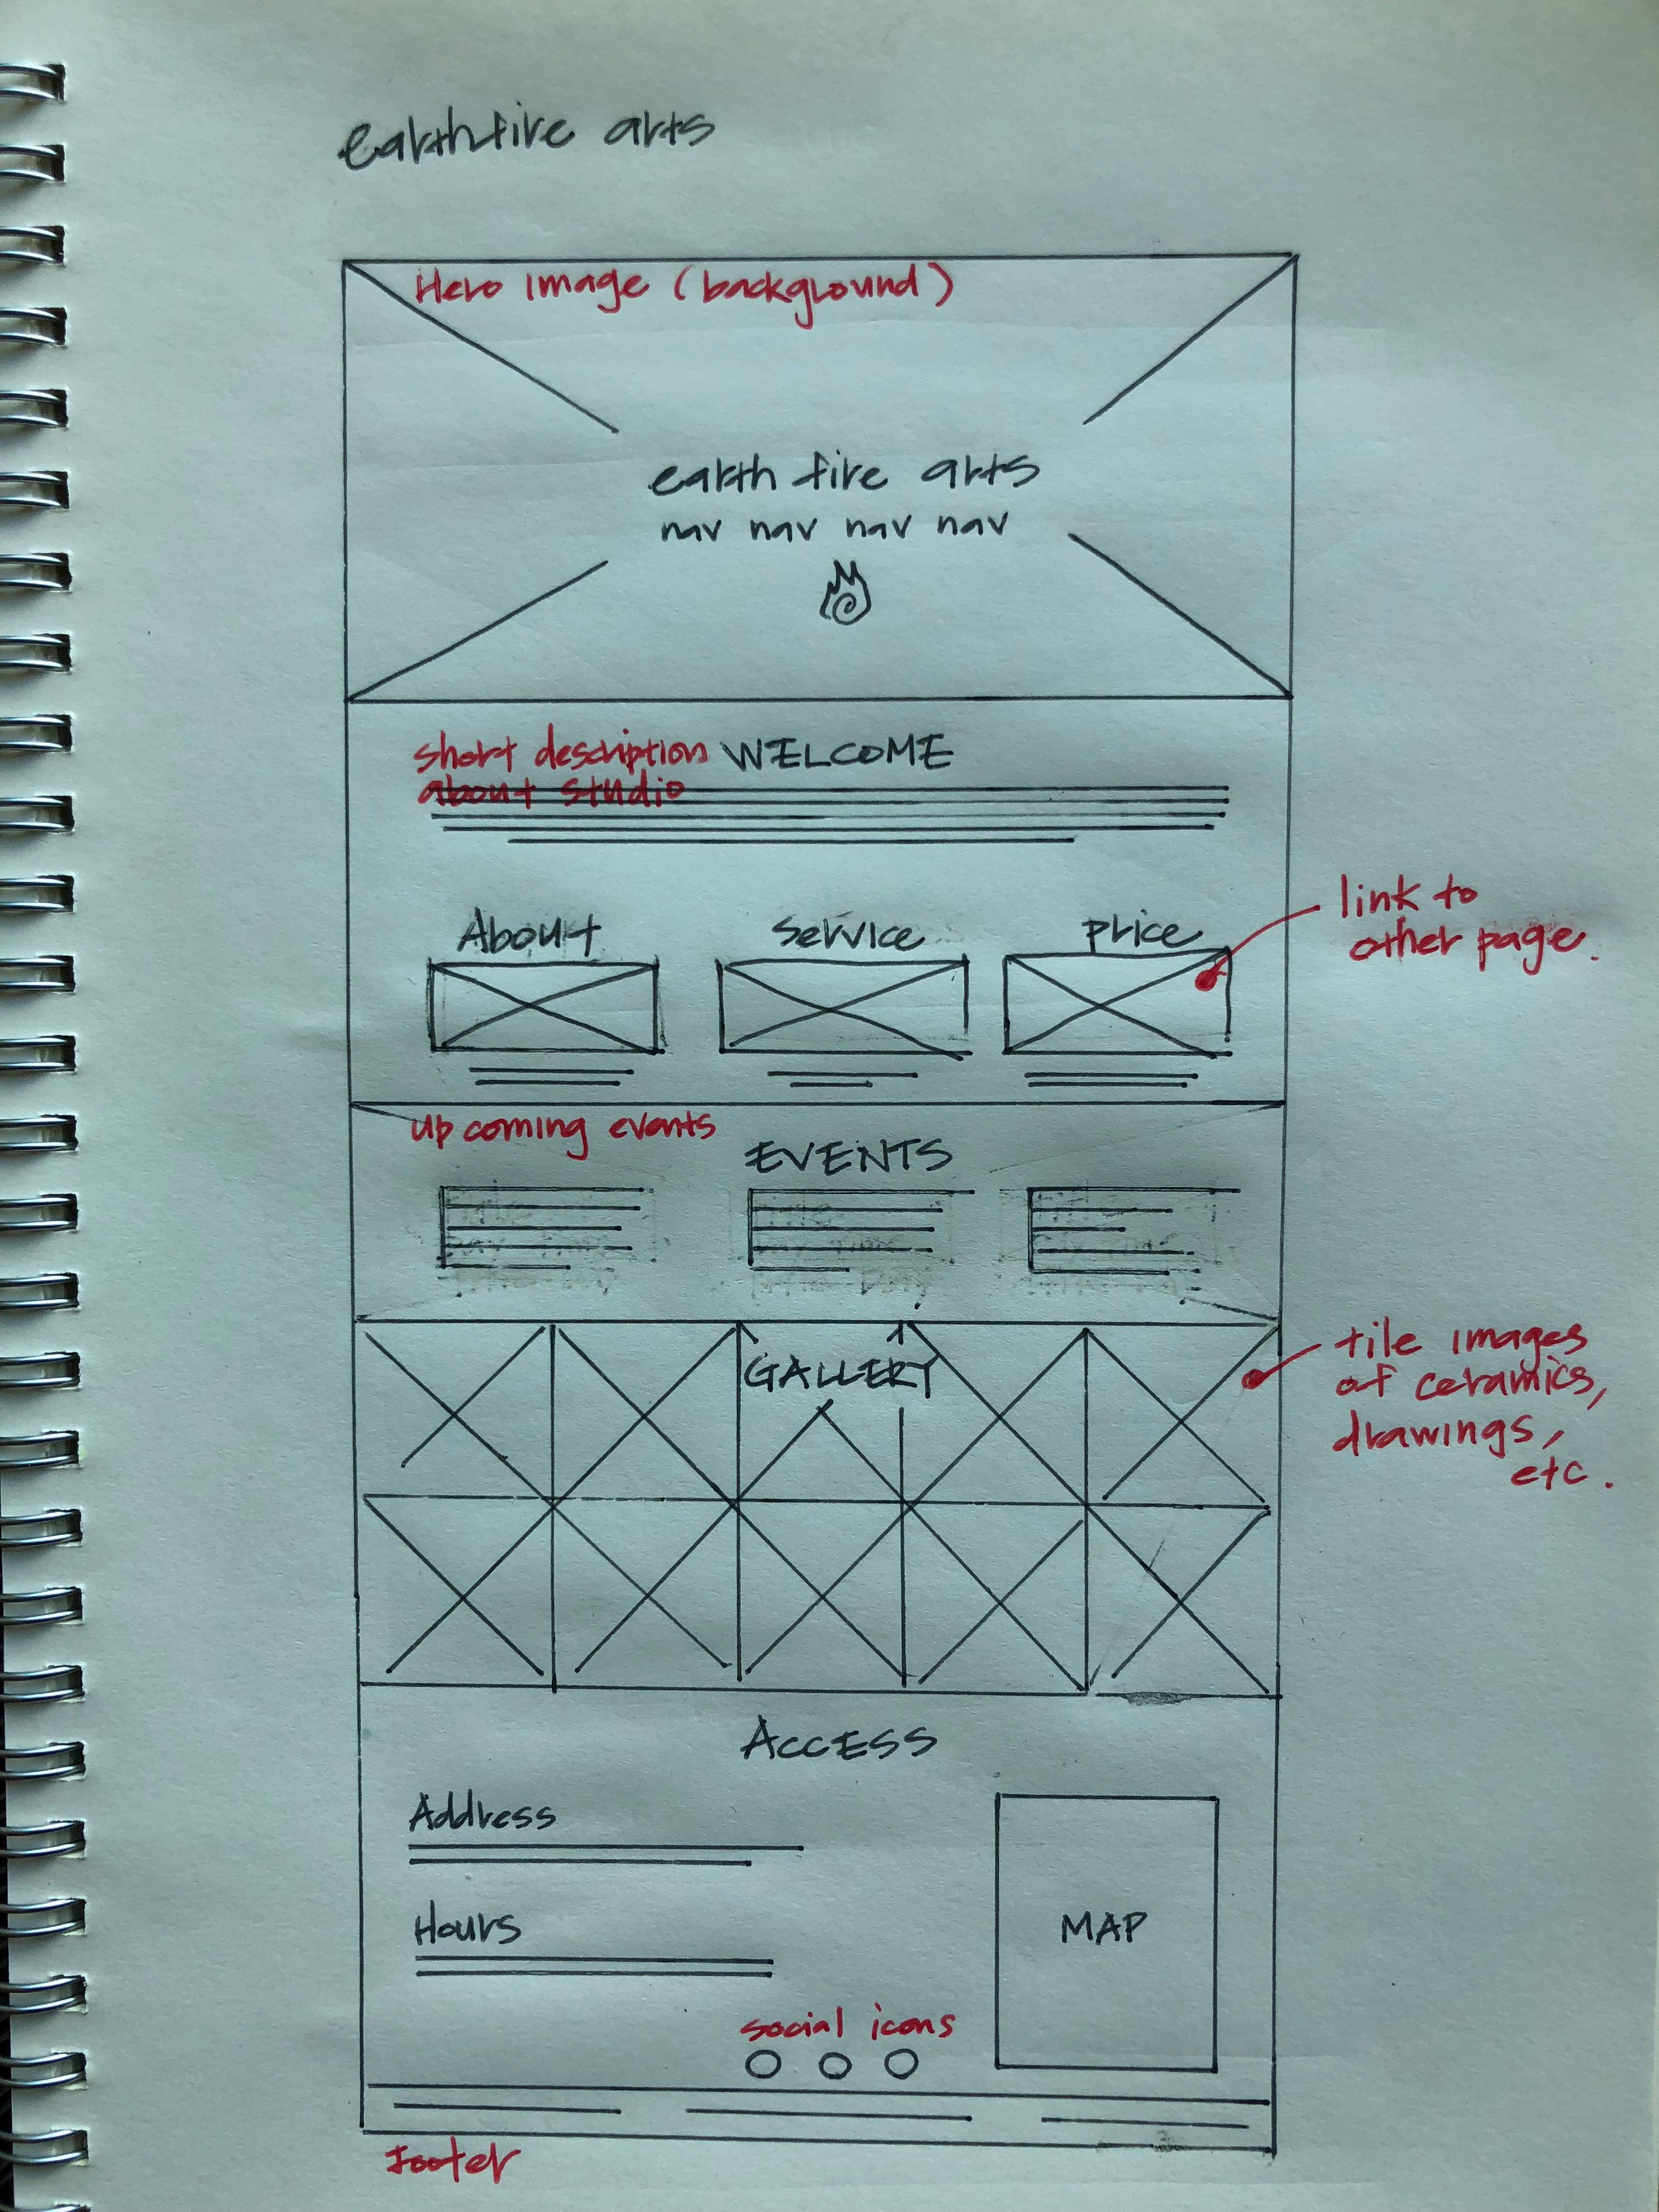 earthfire arts
Hero Image (background)
earth fire arts
nav nav nav nav
short description
about studio
WELCOME
About
Service
price
link to
other page.
up coming events
EVENTS
GALLERY
tile images
of ceramics,
drawings,
etc.
ACCESS
Address
Hours
MAP
social icons
Footer